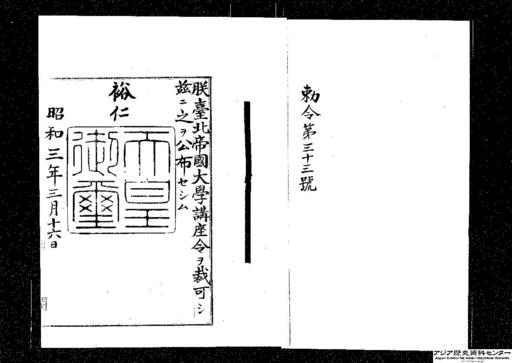 勅令第三十三號
朕臺北帝國大學講座令ヲ裁可シ
茲ニ之ヲ公布セシム
裕仁
天皇御璽
昭和三年三月十六日
アジア歴史資料センター
Japan Center for Asian Historical Records